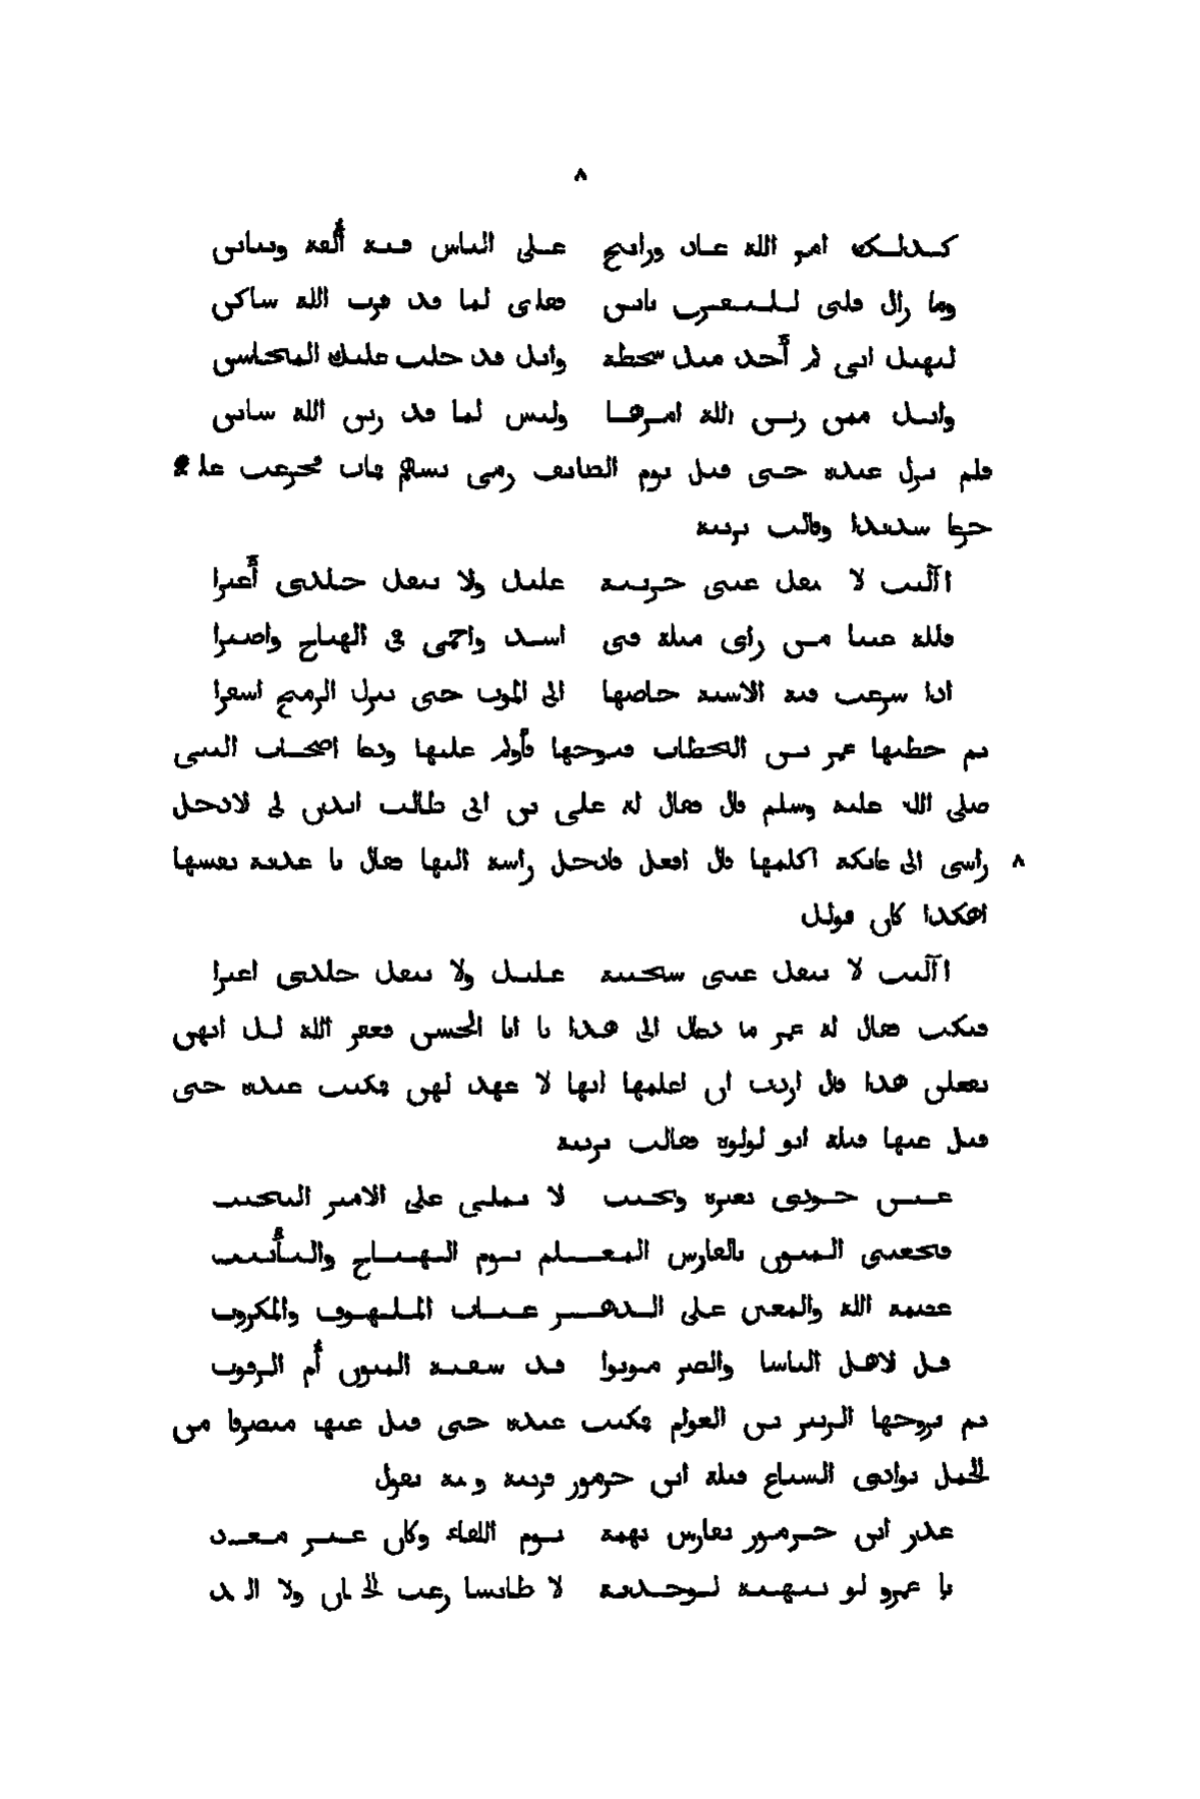 ٨
كذلك امر الله غاد ورائح على الناس فيه ألفة وتباين
وما زال قلبي للتفرق لما قد قرب الله ساكن
ليهنك اني لم أجد منك سخطة وانك قد حلت عليك المحاسن
وانك ممن زين الله امرها وليس لما قد زين الله شاين
فلم تزل عنده حتى قتل يوم الطايف رمي بسهم فمات فجزعت عليه
جزعا شديدا وقالت ترثيه
اآليت لا تنفك عيني حزينة عليك ولا ينفك جلدي أغبرا
فلله عينا من راى مثله فتى اشد واحمى في الهياج واصبرا
اذا شرعت فيه الاسنة خاضها الى الموت حتى يترك الرمح اشقرا
ثم خطبها عمر بن الخطاب فتزوجها فأولم عليها ودعا اصحاب النبي
صلى الله عليه وسلم قال فقال له على بن ابي طالب ايذن لي لادخل
راسي الى عاتكة اكلمها قال افعل فادخل راسه اليها فقال يا عدية نفسها ٨
اهكذا كان قولك
اآليت لا تنفك عيني سخينة عليك ولا ينفك جلدي اغبرا
فبكت فقال له عمر ما دعاك الى هذا يا ابا الحسن فغفر الله لك انهن
يفعلن هذا قال اردت ان اعلمها انها لا عهد لهن فكانت عنده حتى
قتل عنها قتله ابو لولوه فقالت ترثيه
عين جودي بعبرة ونحيب لا تملي على الامير النجيب
فجعتني المنون بالفارس المعلم يوم الهياج والتأنيب
عصمة الله والمعين على الدهر غياث الملهوف والمكروب
قل لاهل الباسا والضر موتوا قد سقته المنون أم الرقوب
ثم تزوجها الزبير بن العوام فكانت عنده حتى قتل عنها منصرفا من
الجمل بوادي السباع قتله ابن جرموز فرثته تقول
غدر ابن جرموز بفارس بهمة يوم اللقاء وكان غير معرد
يا عمرو لو نبهته لوجدته لا طايشا رعش الجنان ولا اليد